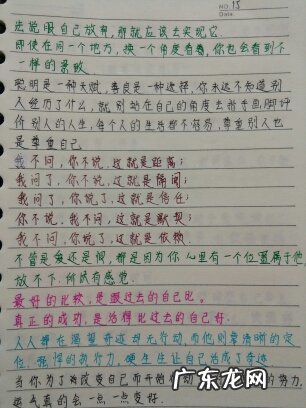 NO. 15
Date
去说服自己放弃，那就应该去实现它
即使在同一个地方，换一个角度看看，你也会看到不
一样的景致
聪明是一种天赋，善良是一种选择，你永远不知道别
人经历了什么，就别站在自己的角度去指手画脚评
价别人的人生，每个人的生活都不容易，尊重别人也
是尊重自己
我不问，你不说，这就是距离；
我问了，你不说，这就是隔阂；
我问了，你说了，这就是信任；
你不说，我不问，这就是默契；
我不问，你说了，这就是依赖。
不管是爱还是恨，都是因为你心里有一个位置属于他
放不下，所以有感觉。
最好的比较，是跟过去的自己比。
真正的成功，是活得比过去的自己好。
人人都在渴望奇迹却无行动，而他则靠清晰的定
位，强悍的执行力，硬生生让自己活成了奇迹
当你为了改变自己而开始 努力，
运气真的会一点一点变好。
广东龙网